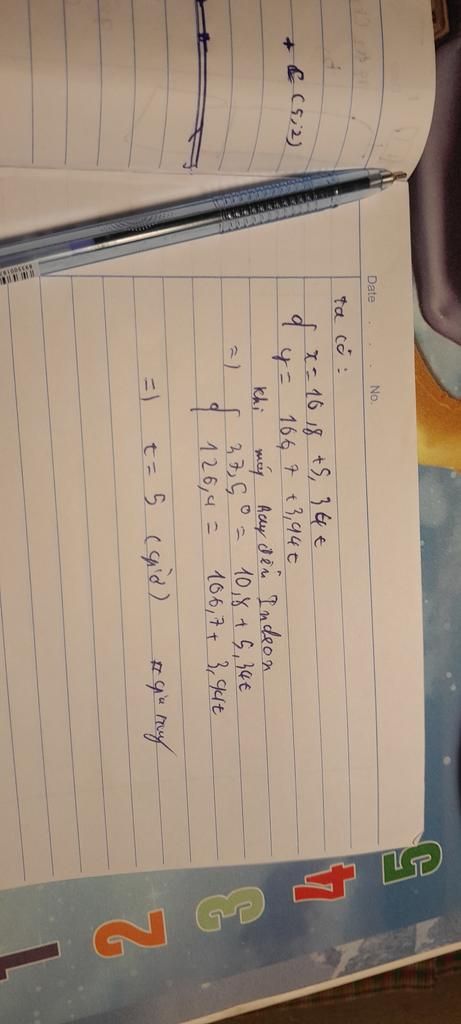 + C (5;2)
Date . . . No.
ta có :
{ x = 10,8 + 5,34t
{ y = 106,7 + 3,94t
khi máy bay đến Indeon
=) { 37,50 = 10,8 + 5,34t
{ 126,4 = 106,7 + 3,94t
=) t = 5 (giờ)
1
2
3
4
5